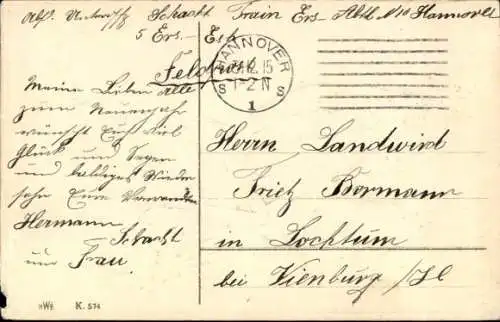 Abs. Unteroffz Schacht Train Ers. Abtl. N 10 Hannover
5 Ers. Esk
Feldpost
HANNOVER
12.15
1-2 N
S S
1
Meine Lieben alle
zum Neuenjahr
wünscht Euch viel
Glück und Segen
und baldiges Wieder
sehn Eure Verwandte
Hermann
Schacht
und Frau.
Herrn Landwird
Frietz Bormann
in Lochtum
bei Vienburg
W K. 574